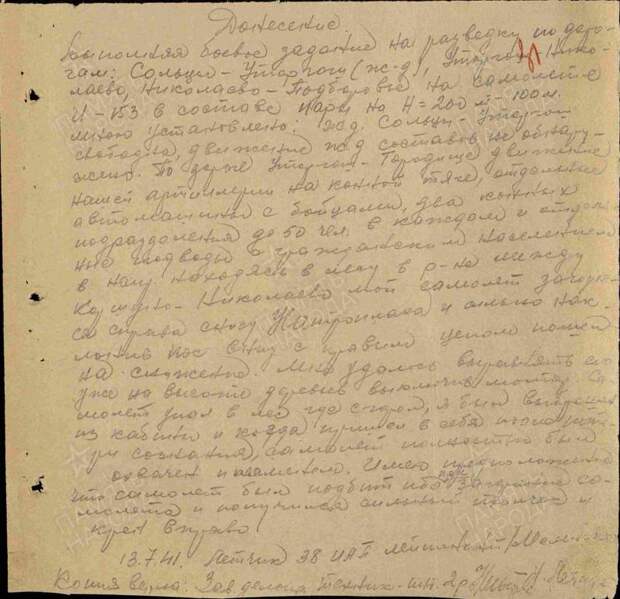 Донесение.
Выполняя боевое задание на разведку по доро-
гам: Сольцы – Уторгош (ж-д), Уторгош – Нико-
лаево, Николаево – Подборовье на самолете
И-153 в составе пары на Н = 200 м – 100 м.
мною установлено: жд. Сольцы – Уторгош
свободна, движение жд составов не обнару-
жено. По дороге Уторгош – Городище движение
нашей артиллерии на конной тяге, отдельные
автомашины с бойцами, два конных
подразделения до 50 чел в каждом и отдель-
ные подводы с гражданским населением
в нашу находясь в лесу в р-не между
Николаево мой самолет загорел-
ся справа снизу и сильно нак-
лонив нос вниз с правым углом пошел
на снижение. Мне удалось выправить его
уже на высоте деревьев выключить мотор. Са-
молет упал в лес где сгорел, я был выброшен
из кабины и когда пришел в себя после поте-
ри сознания, самолет полностью был
охвачен пламенем. Имею предположение
что самолет был подбит ибо при загорании са-
молета я получился сильный толчек и
крен вправо
13.7.41. Летчик 38 ИАП лейтенант
Копия верна: Зав делопр техник-ин. 2р